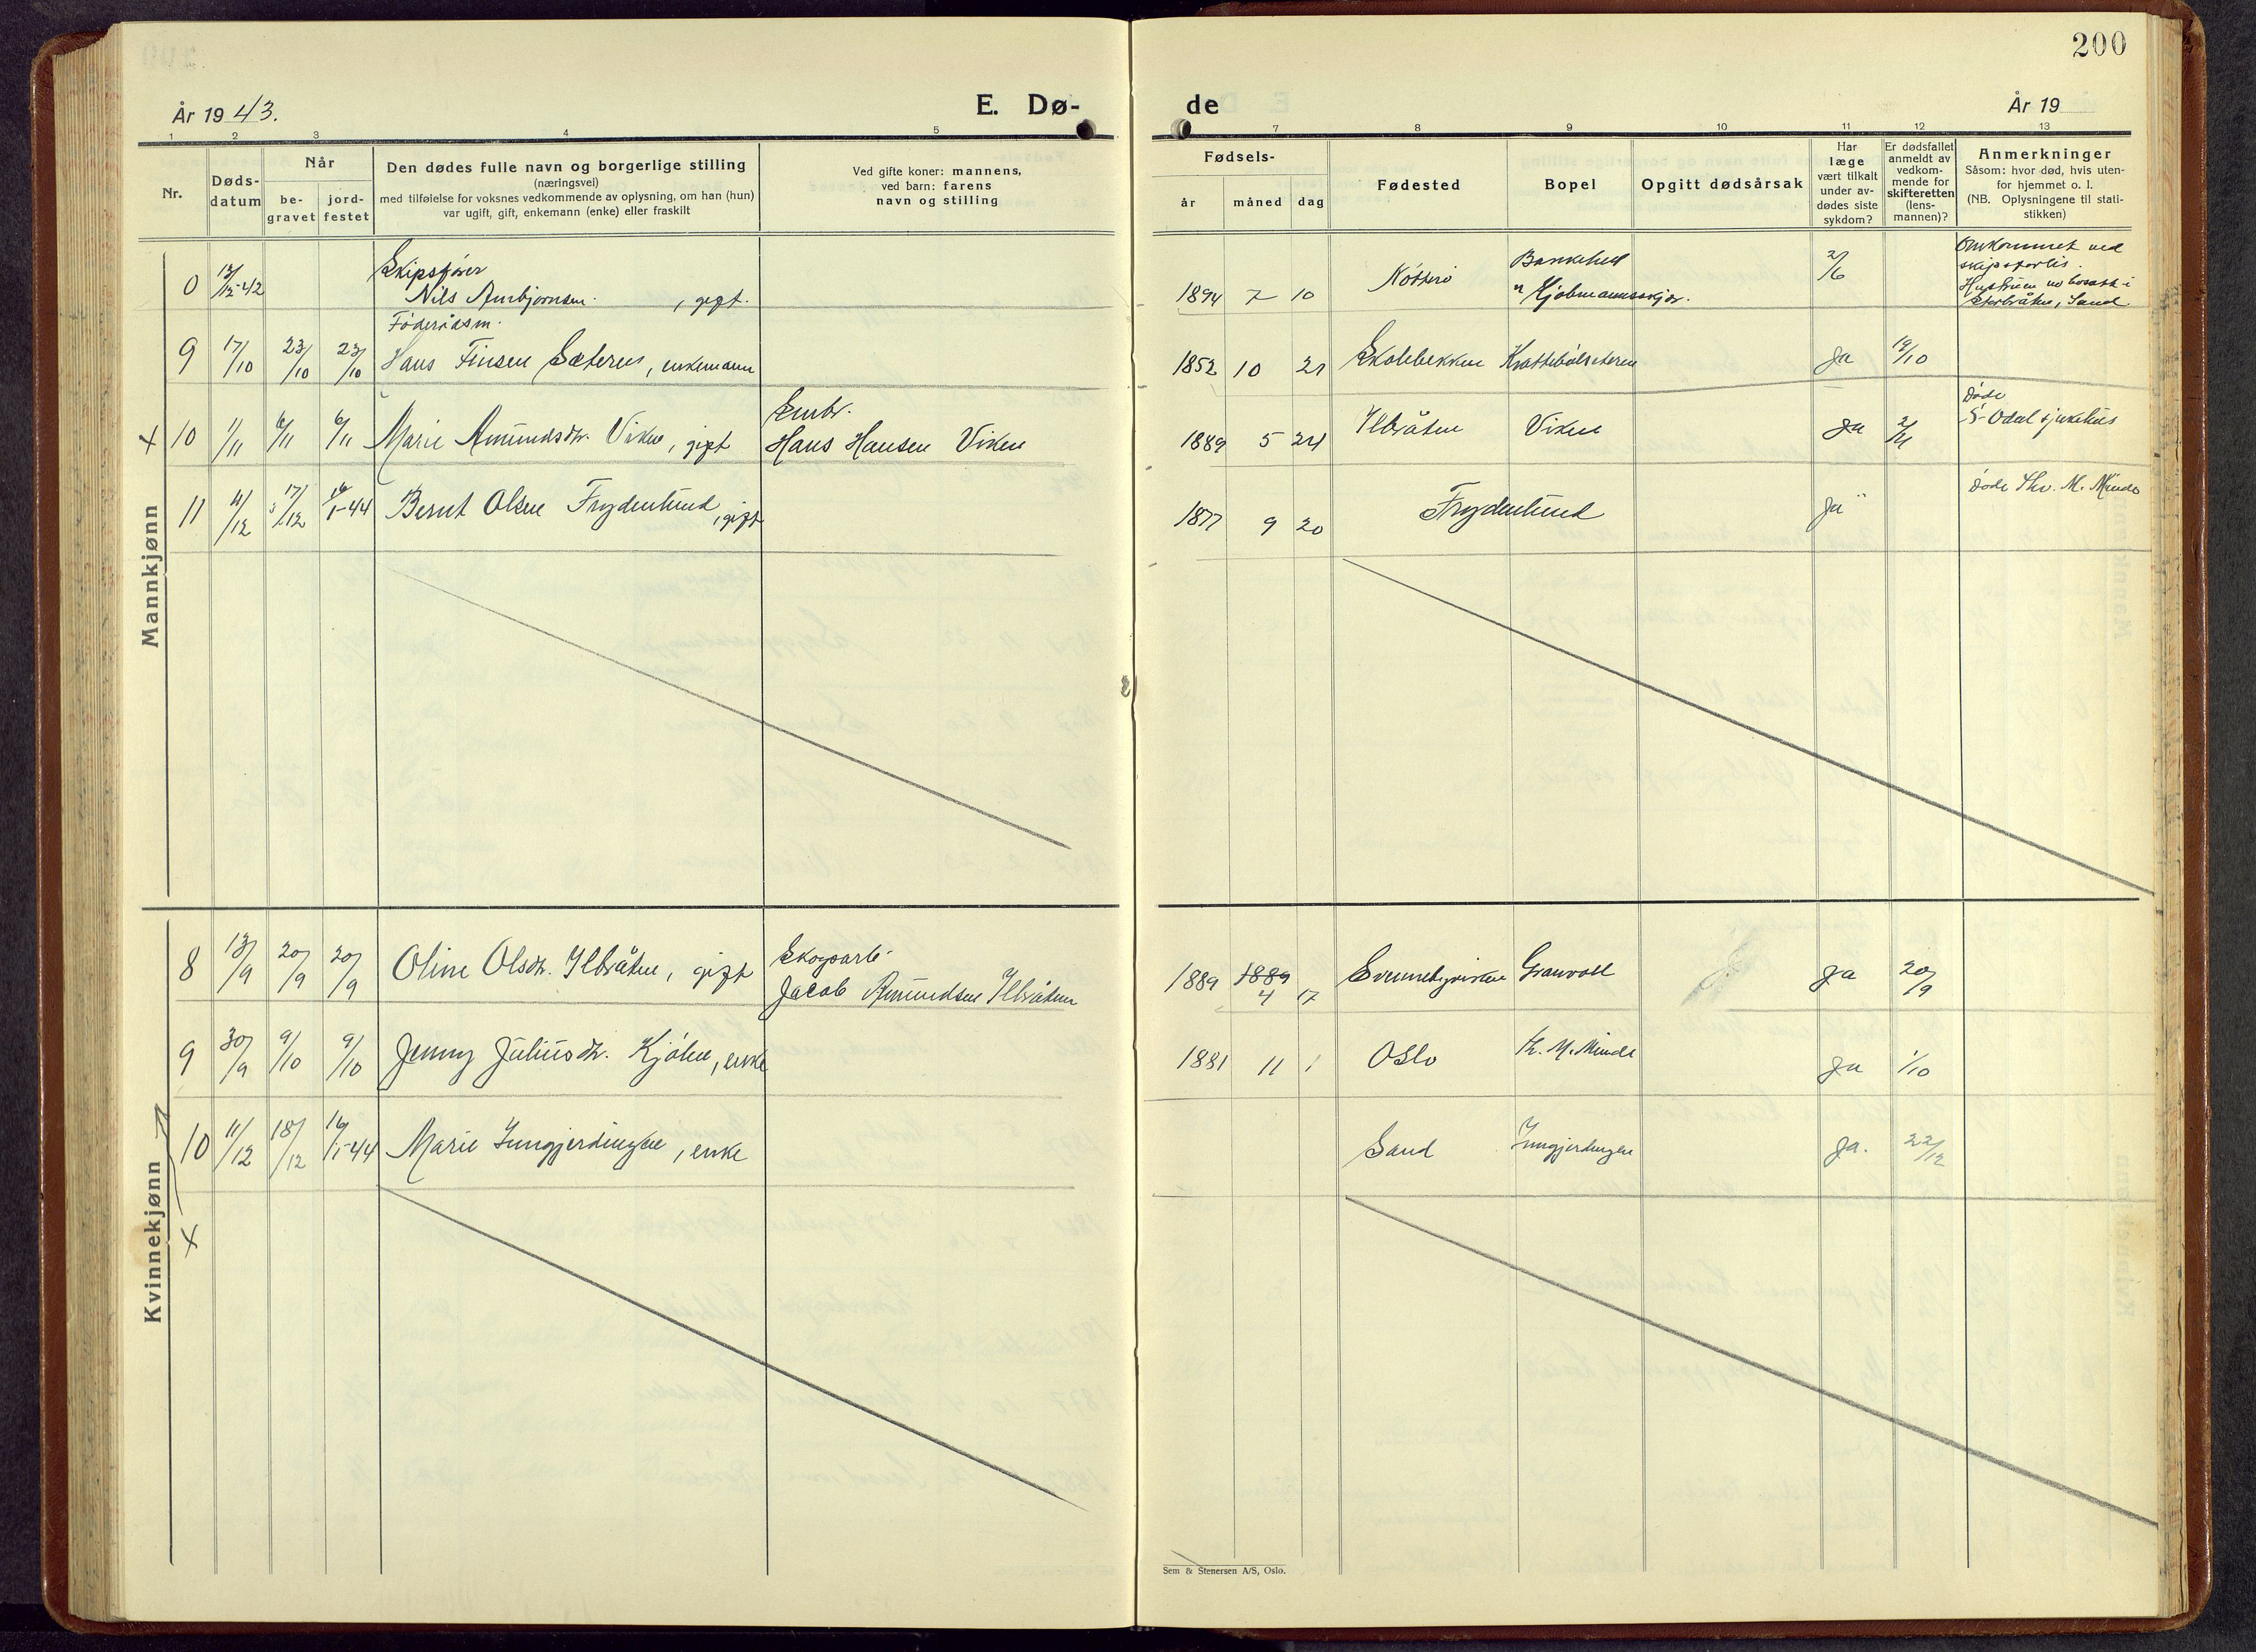 200
År 1943.
E. Dø-
de
År 19
1 2 3 4 5
7 8 9 10 11 12 13
Nr.
Døds-
datum
Når
be-
gravet
jord-
festet
Den dødes fulle navn og borgerlige stilling
(næringsvei)
med tilføielse for voksnes vedkommende av oplysning, om han (hun)
var ugift, gift, enkemann (enke) eller fraskilt
Ved gifte koner: mannens,
ved barn: farens
navn og stilling
Fødsels-
år
måned
dag
Fødested
Bopel
Opgitt dødsårsak
Har
læge
vært tilkalt
under av-
dødes siste
sykdom?
Er dødsfallet
anmeldt av
vedkom-
mende for
skifteretten
(lens-
mannen)?
Anmerkninger
Såsom: hvor død, hvis uten-
for hjemmet o. l.
(NB. Oplysningene til stati-
stikken)
Mannkjønn
Skipsfører
0 13/12-42 Nils Arnbjørnsen, gift. 1894 7 10 Nøtterø
Omkommet ved
skipsforlis.
Føderådsm.
9 17/10 23/10 23/10 Hans Finsen Sæteren, enkemann 1852 10 21 Skolebekken Ja 19/10
Embr.
x 10 1/11 6/11 6/11 Marie Amundsdtr. Viken, gift Hans Hansen Viken 1889 5 24 Ilbråten Viken Ja 2/11
Døde
S-Odal sjukehus
11 11/12 17/12 16/1-44 Bernt Olsen Frydenlund, gift 1877 9 20 Frydenlund Ja Døde Thv. M. Minde
Kvinnekjønn
Skogsarb.
8 13/9 20/9 20/9 Oline Olsdtr. Ilbråten, gift Jacob Amundsen Ilbråten 1889 1889 4 17 Granvoll Ja 20/9
9 30/9 9/10 9/10 Jenny Juliusdtr. Kjølen, enke 1881 11 1 Oslo Th. M. Minde Ja 1/10
10 11/12 18/12 16/1-44 Marie Inngjerdingen, enke Sand Inngjerdingen Ja. 22/12
x
Sem & Stenersen A/S, Oslo.